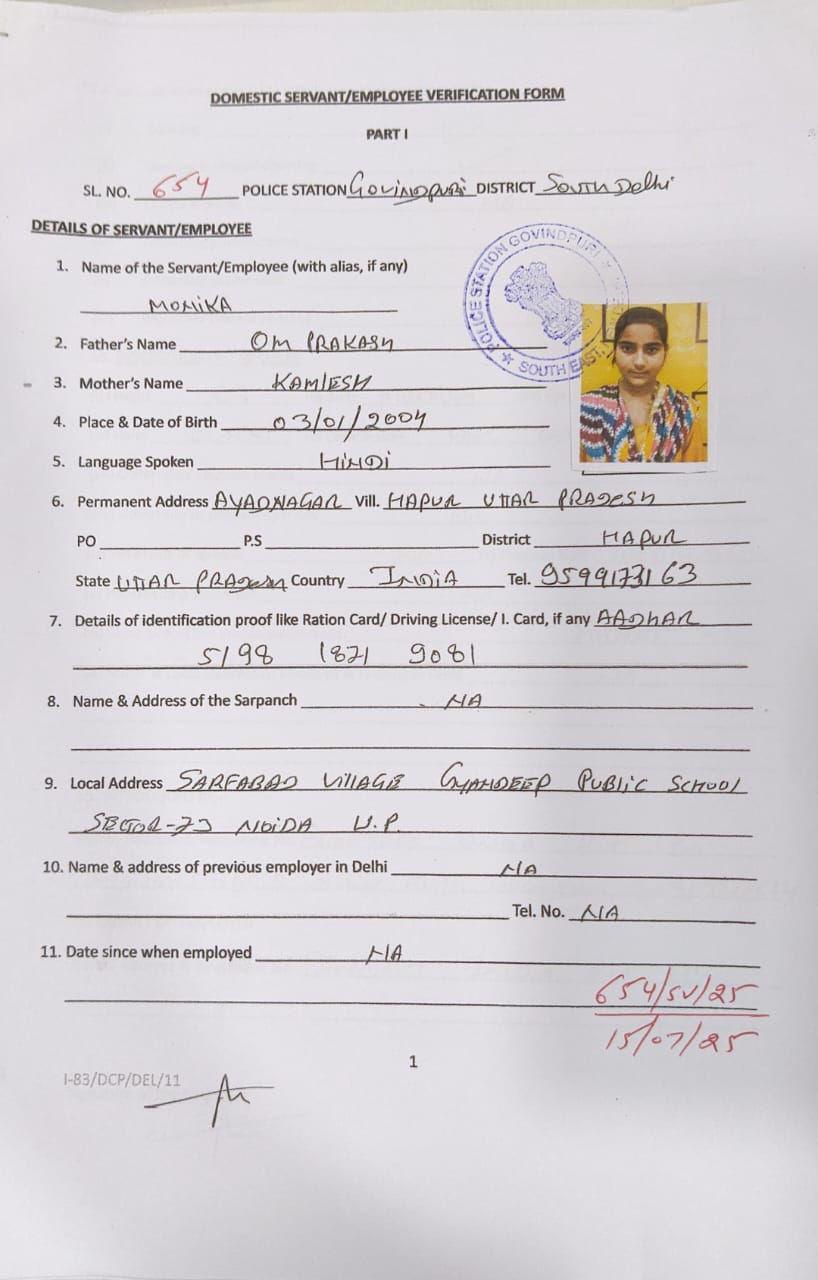 DOMESTIC SERVANT/EMPLOYEE VERIFICATION FORM
PART I
SL. NO. 654 POLICE STATION Govindpuri DISTRICT South Delhi
DETAILS OF SERVANT/EMPLOYEE
1. Name of the Servant/Employee (with alias, if any)
MONIKA
2. Father's Name OM PRAKASH
3. Mother's Name KAMLESH
4. Place & Date of Birth 03/01/2004
5. Language Spoken HINDI
POLICE STATION GOVINDPURI ★ SOUTH EAST, ★
6. Permanent Address AYADNAGAR Vill. HAPUR UTTAR PRADESH
PO P.S District HAPUR
State UTTAR PRADESH Country INDIA Tel. 9599173163
7. Details of identification proof like Ration Card/ Driving License/ I. Card, if any AADHAR
5198 1821 9081
8. Name & Address of the Sarpanch NA
9. Local Address SARFABAD VillAGE GYANDEEP PUBLIC SCHOOL
SECTOR-73 NOIDA U.P.
10. Name & address of previous employer in Delhi NA
Tel. No. NA
11. Date since when employed NA
654/SV/25
15/07/25
1
I-83/DCP/DEL/11